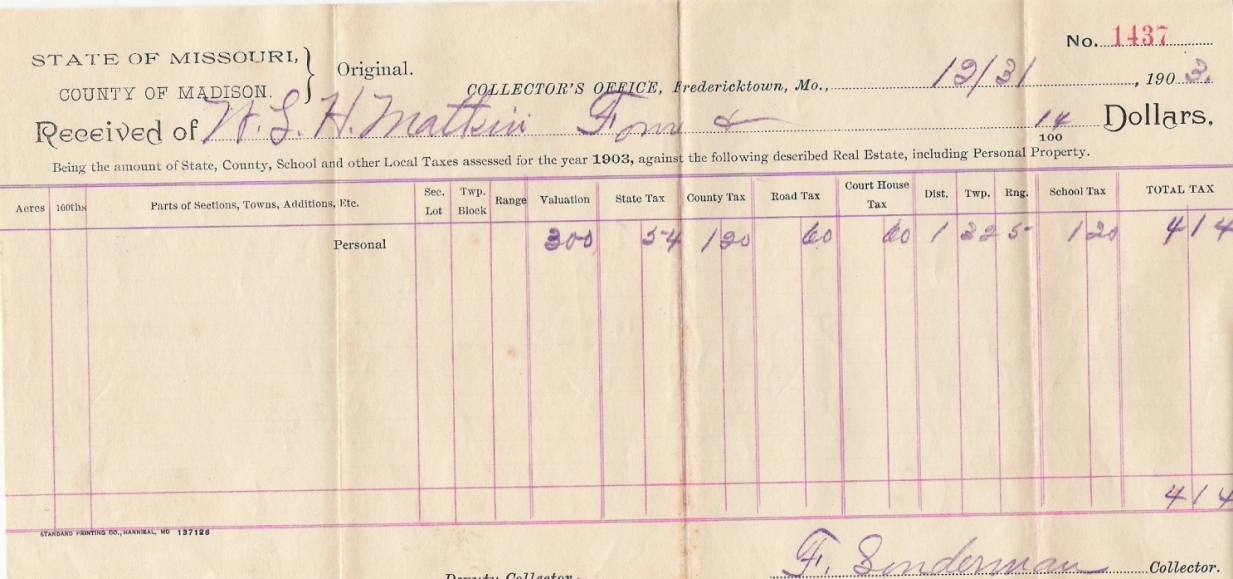 No. 1437
STATE OF MISSOURI,
COUNTY OF MADISON.
Original.
COLLECTOR'S OFFICE, Fredericktown, Mo., 12/31, 1903.
Received of W. L. H. Mattkin Four & 14/100 Dollars,
Being the amount of State, County, School and other Local Taxes assessed for the year 1903, against the following described Real Estate, including Personal Property.
Acres 100ths Parts of Sections, Towns, Additions, Etc. Sec. Lot Twp. Block Range Valuation State Tax County Tax Road Tax Court House Tax Dist. Twp. Rng. School Tax TOTAL TAX
Personal 300 54 1 20 60 60 1 32 5 1 20 4 14
4 14
STANDARD PRINTING CO., HANNIBAL, MO 137126
Deputy Collector. F. Sonderman Collector.